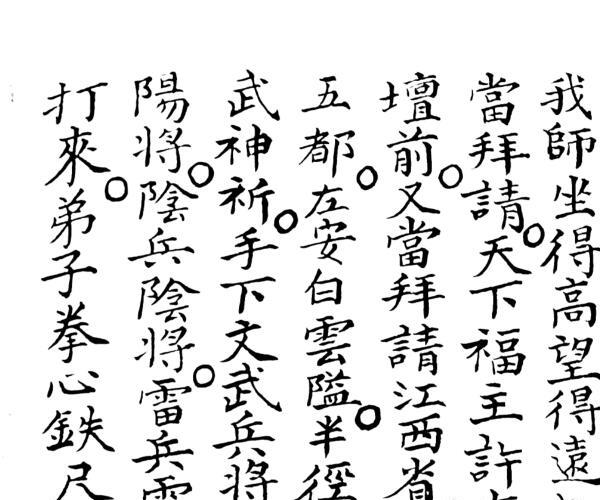 我師坐得高望得遠
當拜請○天下福主許
壇前○又當拜請江西省
五都○左安白雲隘○半徑
武神祈○手下文武兵將
陽將○陰兵陰將○雷兵雷
打來○弟子拳心鉄尺